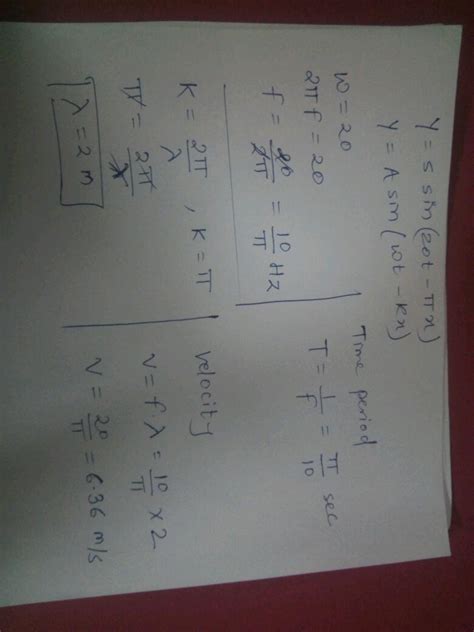 y = 5 sin(20t - πx)
y = A sin(ωt - kx)
ω = 20
2πf = 20
f = 20/2π = 10/π Hz
Time period
T = 1/f = π/10 sec
K = 2π/λ , K = π
π = 2π/λ
λ = 2 m
Velocity
v = fλ = 10/π × 2
v = 20/π = 6.36 m/s